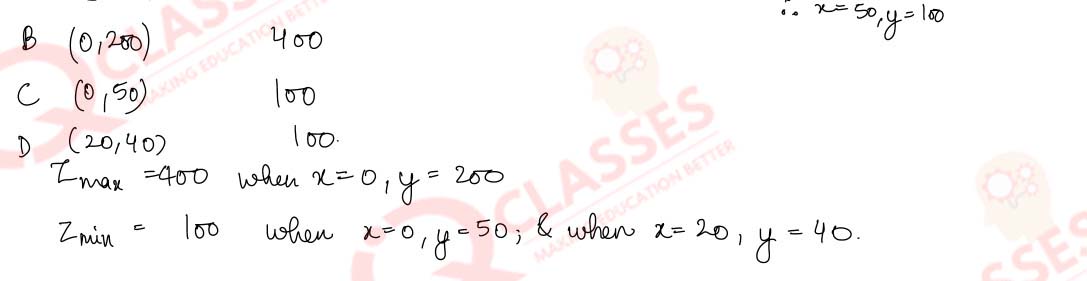 ∴ x=50, y=100
B (0,200) 400
C (0,50) 100
D (20,40) 100.
Zmax =400 when x=0, y = 200
Zmin = 100 when x=0, y=50; & when x=20, y = 40.
CLASSES
MAKING EDUCATION BETTER
CLASSES
MAKING EDUCATION BETTER
SSES